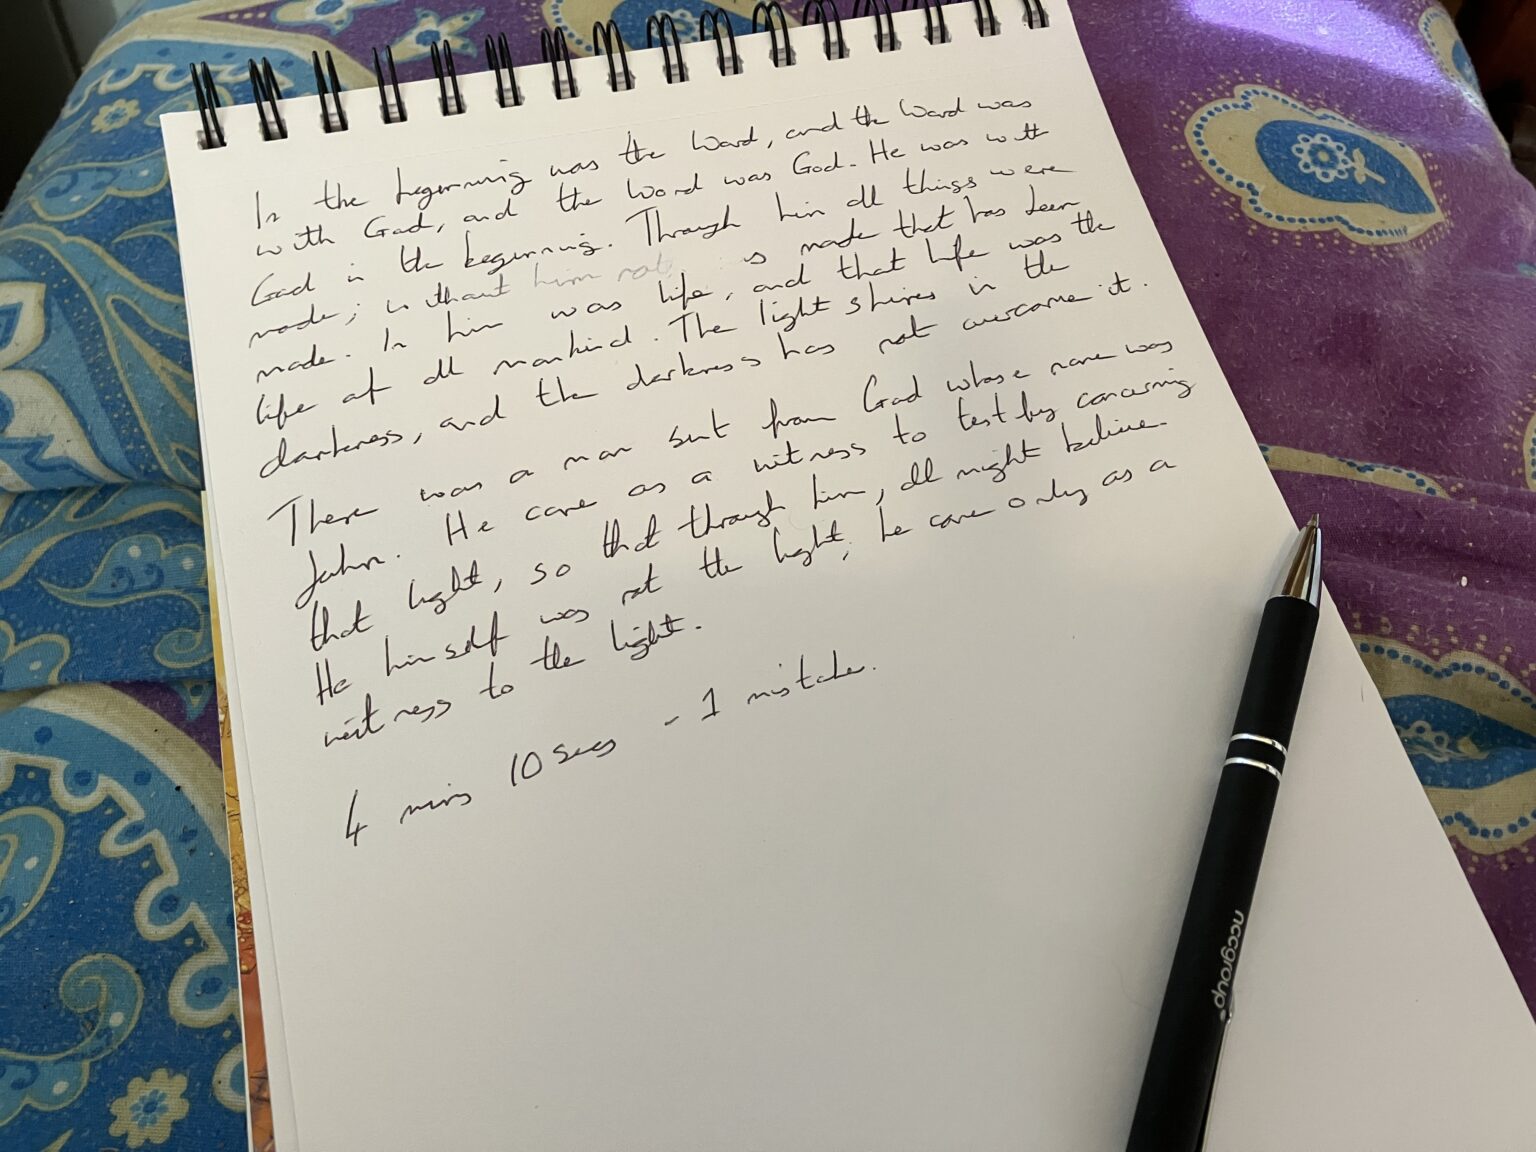 In the beginning was the Word, and the Word was
with God, and the Word was God. He was with
God in the beginning. Through him all things were
made; without him not is made that has been
made. In him was life, and that life was the
life of all mankind. The light shines in the
darkness, and the darkness has not overcome it.
There was a man sent from God whose name was
John. He came as a witness to testby concerning
that light, so that through him, all might believe.
He himself was not the light; he came only as a
witness to the light.
4 mins 10 secs - 1 mistake.
nccgroup